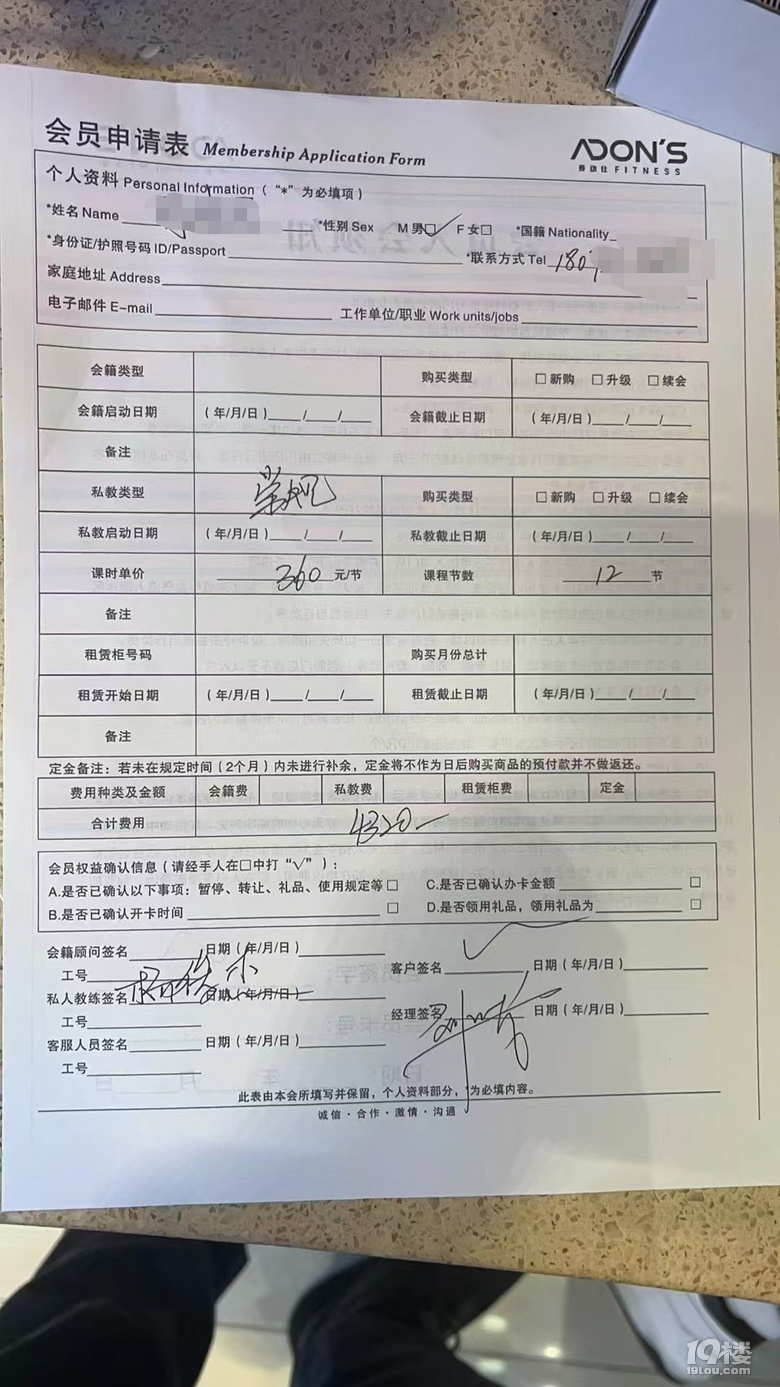 会员申请表 Membership Application Form
ADON'S
FITNESS
个人资料 Personal Information（"*"为必填项）
*姓名 Name *性别 Sex M 男☑ F 女□ *国籍 Nationality
*身份证/护照号码 ID/Passport *联系方式 Tel 180
家庭地址 Address
电子邮件 E-mail 工作单位/职业 Work units/jobs
会籍类型 购买类型 □ 新购 □ 升级 □ 续会
会籍启动日期 （年/月/日）___/___/___ 会籍截止日期 （年/月/日）___/___/___
备注
私教类型 常规 购买类型 □ 新购 □ 升级 □ 续会
私教启动日期 （年/月/日）___/___/___ 私教截止日期 （年/月/日）___/___/___
课时单价 360 元/节 课程节数 12 节
备注
租赁柜号码 购买月份总计
租赁开始日期 （年/月/日）___/___/___ 租赁截止日期 （年/月/日）___/___/___
备注
定金备注：若未在规定时间（2个月）内未进行补余，定金将不作为日后购买商品的预付款并不做返还。
费用种类及金额 会籍费 私教费 租赁柜费 定金
合计费用 4320-
会员权益确认信息（请经手人在□中打"√"）：
A.是否已确认以下事项：暂停、转让、礼品、使用规定等 □ C.是否已确认办卡金额 □
B.是否已确认开卡时间 □ D.是否领用礼品，领用礼品为 □
会籍顾问签名 日期（年/月/日）
工号 客户签名 日期（年/月/日）
私人教练签名 日期（年/月/日）
工号 经理签名 日期（年/月/日）
客服人员签名 日期（年/月/日）
工号
此表由本会所填写并保留，个人资料部分，*为必填内容。
诚信·合作·激情·沟通
19楼
19lou.com